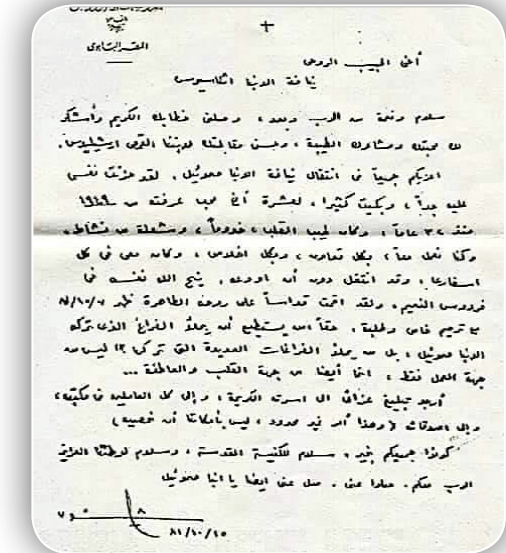 المقر البابوى
أخى الحبيب الروحى
نيافة الانبا اثناسيوس
سلام ونعمة من الرب وبعد، وصلنى خطابك الكريم وأشكر
لك محبتك ومشاعرك الطيبة، وحسن مقابلتك لابننا القمص
اعزيكم جميعاً فى انتقال نيافة الانبا صموئيل. لقد حزنت نفسى
عليه جداً، وبكيت كثيرا، لعشرة أخ محب عرفته من ١٩٤٩
منذ ٣٢ عاماً، وكان طيب القلب، خدوماً، وشعلة من نشاط.
وكنا نعمل معاً، بكل تعاون، وبكل اخلاص، وكان معى فى كل
اسفارى، وقد انتقل دون أن اودعه. ينيح الله نفسه فى
فردوس النعيم. ولقد اقمت قداساً على روحه الطاهرة ظهر ٨١/١٠/٧
مع ترحيم خاص وطلبة. حقاً من يستطيع أن يملأ الفراغ الذى تركه
الانبا صموئيل، بل من يملأ الفراغات العديدة التى تركها؟! ليس من
جهة العمل فقط، انما أيضا من جهة القلب والعاطفة ...
أرجو تبليغ عزائى الى اسرته الكريمة، وإلى كل العاملين فى مكتبه،
وإلى اصدقائه (وهذا أمر غير محدود، ليس بامكاننا أن نحصيه)
كونوا جميعكم بخير. سلام للكنيسة المقدسة، وسلام لوطننا العزيز
الرب معكم. صلوا عنى. صل عنى ايضا يا انبا صموئيل
٨١/١٠/١٥